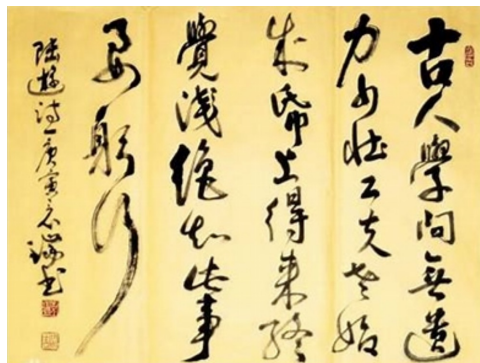 古人學問無遺
力少壯工夫老始
成帋上得来終
覺淺絶知此事
要躬行
陸遊诗一庚寅书